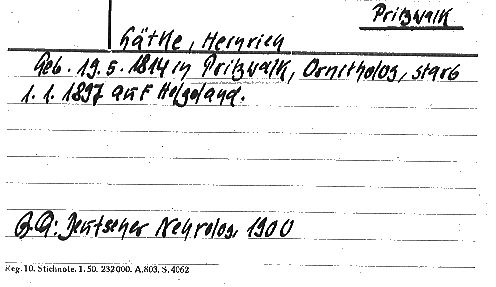 Pritzwalk
Gätke, Heinrich
Geb. 19.5.1814 in Pritzwalk, Ornitholog, starb
1.1.1897 auf Helgoland.
B.A: Deutscher Nekrolog, 1900
Reg. 10. Stichnote. 1. 50. 232000. A.803. S. 4062